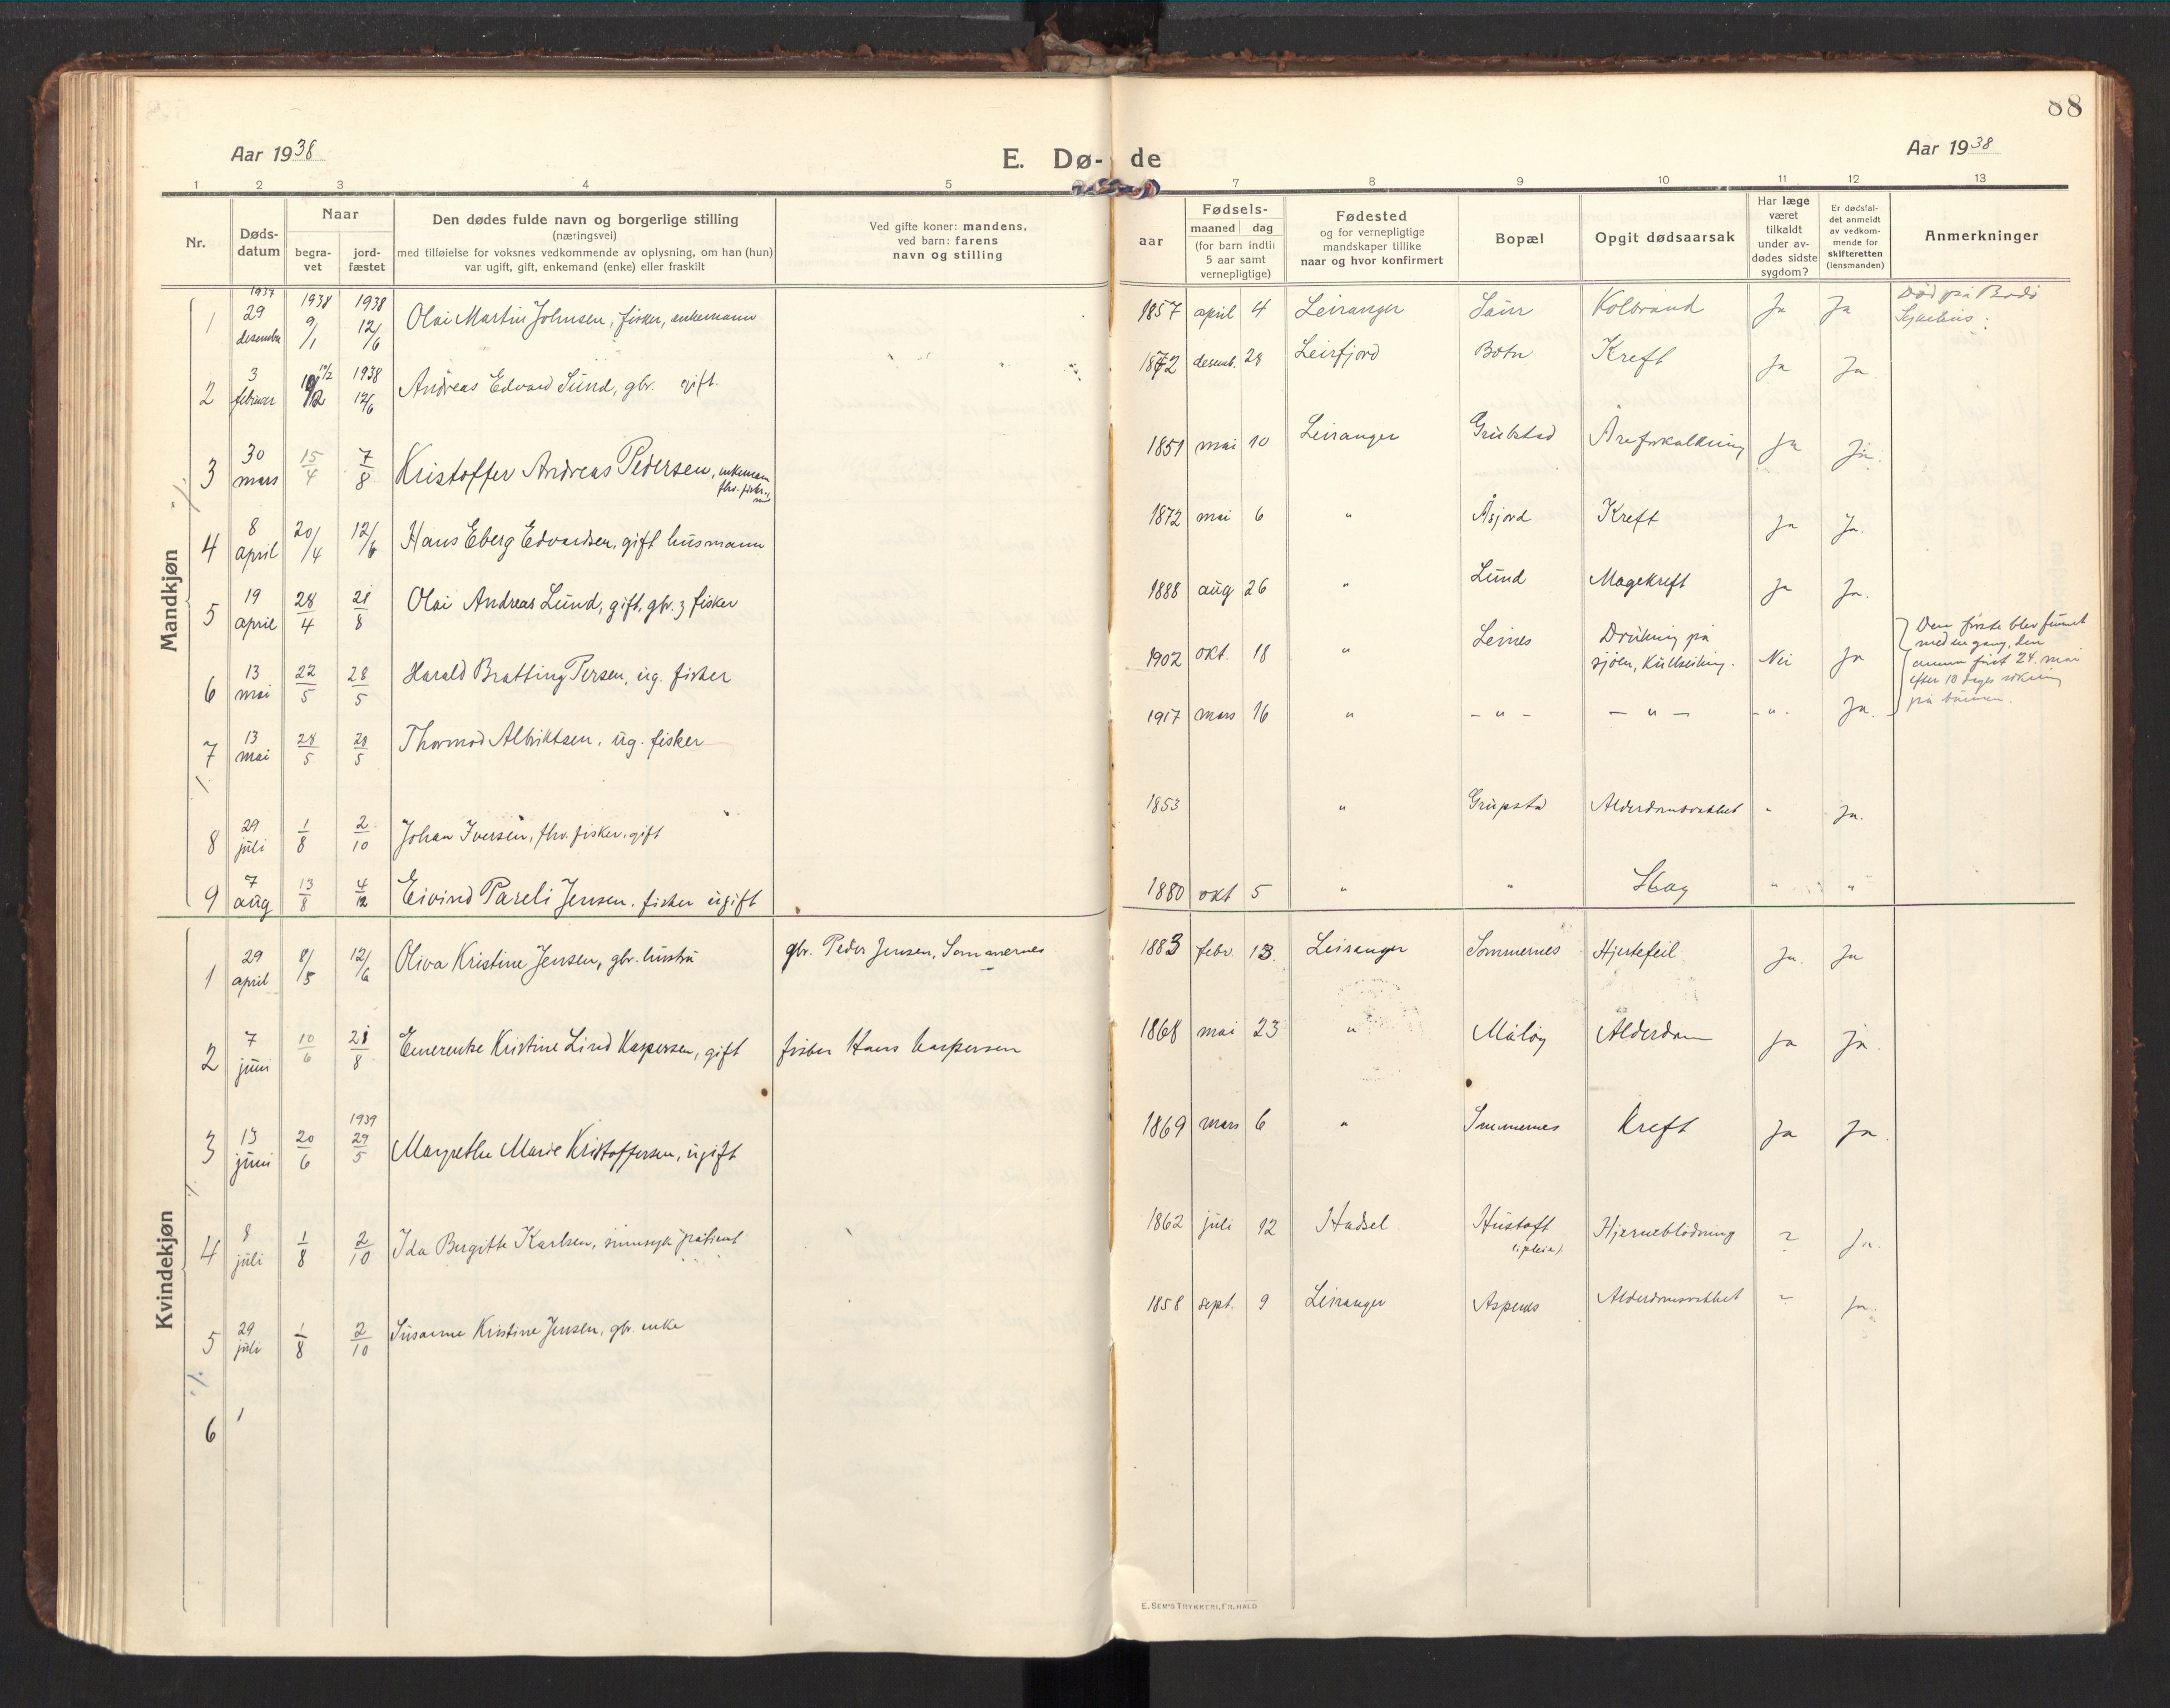 88
Aar 1938
E. Dø- de
Aar 1938
1 2 3 4 5 7 8 9 10 11 12 13
Nr.
Døds-
datum
Naar
begra-
vet
jord-
fæstet
Den dødes fulde navn og borgerlige stilling
(næringsvei)
med tilføielse for voksnes vedkommende av oplysning, om han (hun)
var ugift, gift, enkemand (enke) eller fraskilt
Ved gifte koner: mandens,
ved barn: farens
navn og stilling
aar
Fødsels-
maaned dag
(for barn indtil
5 aar samt
vernepligtige)
Fødested
og for vernepligtige
mandskaper tillike
naar og hvor konfirmert
Bopæl
Opgit dødsaarsak
Har læge
været
tilkaldt
under av-
dødes sidste
sygdom?
Er dødsfal-
det anmeldt
av vedkom-
mende for
skifteretten
(lensmanden)
Anmerkninger
Mandkjøn
1 1937 29 desember 1938 9/1 1938 12/6 Olai Martin Johnsen, fisker, enkemann 1857 april 4 Leiranger Kolbrand Ja Ja Død på Bodø
2 3 februar 1938 12/6 Andreas Edvard Sund, gbr. gift. 1872 desemb. 28 Leirfjord Botn Kreft Ja Ja.
3 30 mars 15/4 7/8 Kristoffer Andreas Pedersen, enkemann 1851 mai 10 Leiranger Åreforkalkning Ja Ja.
4 8 april 20/4 12/6 Hans Eberg Edvardsen, gift husmann 1872 mai 6 " Åsjord Kreft Ja Ja.
5 19 april 28/4 21/8 Olai Andreas Lund, gift, gbr. & fisker 1888 aug 26 " Lund Magekreft Ja Ja.
6 13 mai 22/5 28/5 Harald Bratting Persen, ug. fisker 1902 okt. 18 " Leines Drukning på
sjøen, Kullseiling. Nei Ja
Den første blev funnet
med en gang, den
annen først 24. mai
efter 10 dages sökning
på bunnen.
7 13 mai 28/5 28/5 Thormod Albriktsen, ug. fisker 1917 mars 16 " - " - - " - - " - Ja.
8 29 juli 1/8 2/10 Johan Iversen, fhv. fisker, gift 1853 " Grupstad Alderdomssvakhet " Ja.
9 7 aug 13/8 4/12 Eivind Pareli Jensen. fisker ugift 1880 okt 5 " " Slag " "
Kvindekjøn
1 29 april 8/5 12/6 Oliva Kristine Jensen, gbr. hustru gbr. Peder Jensen, Sommernes 1883 febr. 13. Leiranger Sommernes Hjertefeil Ja. Ja
2 7 juni 10/6 28/8 Emerentse Kristine Lind Kaspersen, gift fisker Hans Kaspersen 1868 mai 23 " Måløy Alderdom Ja Ja.
3 13 juni 20/6 1939 29/5 Margrethe Marie Kristoffersen, ugift 1869 mars 6 " Sommernes Kreft Ja Ja.
4 8 juli 1/8 2/10 Ida Bergitte Karlsen, sinnsyk patient 1862 juli 12 Hadsel Hustoft
(i pleie) Hjerneblödning ? Ja.
5 29 juli 1/8 2/10 Susanne Kristine Jensen, gbr. enke 1858 sept. 9 Leiranger Aspenes Alderdomssvakhet - Ja.
6
E. SEM'S TRYKKERI, FR.HALD